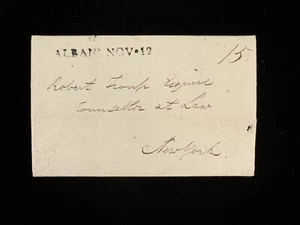 ALBANY NOV•12
15
Robert Troup Esquire
Counsellor at Law
New York.